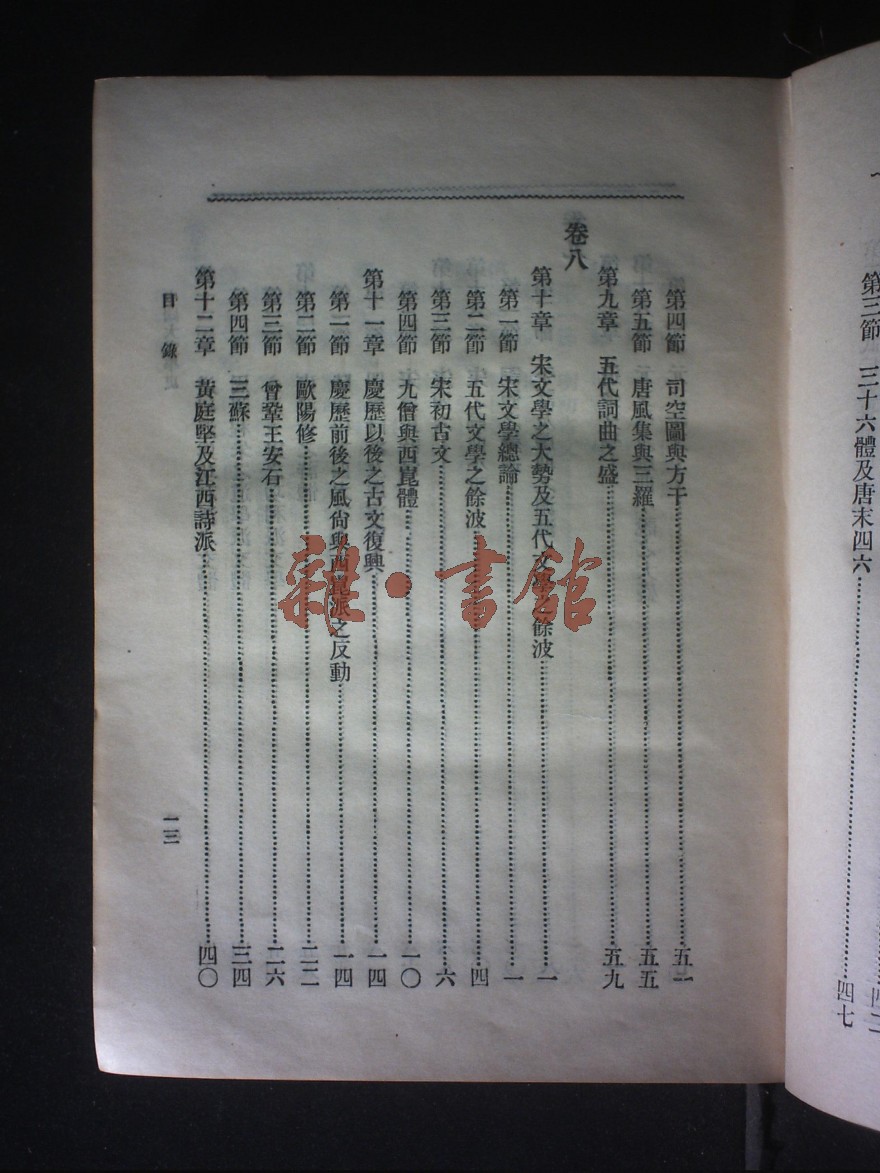 第三節 三十六體及唐末四六……四七
第四節 司空圖與方干……五一
第五節 唐風集與三羅……五五
第九章 五代詞曲之盛……五九
卷八
第十章 宋文學之大勢及五代文學之餘波……一
第一節 宋文學總論……一
第二節 五代文學之餘波……四
第三節 宋初古文……六
第四節 九僧與西崑體……一〇
第十一章 慶歷以後之古文復興……一四
第一節 慶歷前後之風尙與西崑派之反動……一四
第二節 歐陽修……二二
第三節 曾鞏王安石……二六
第四節 三蘇……三四
第十二章 黃庭堅及江西詩派……四〇
目錄
一三
雜·書館